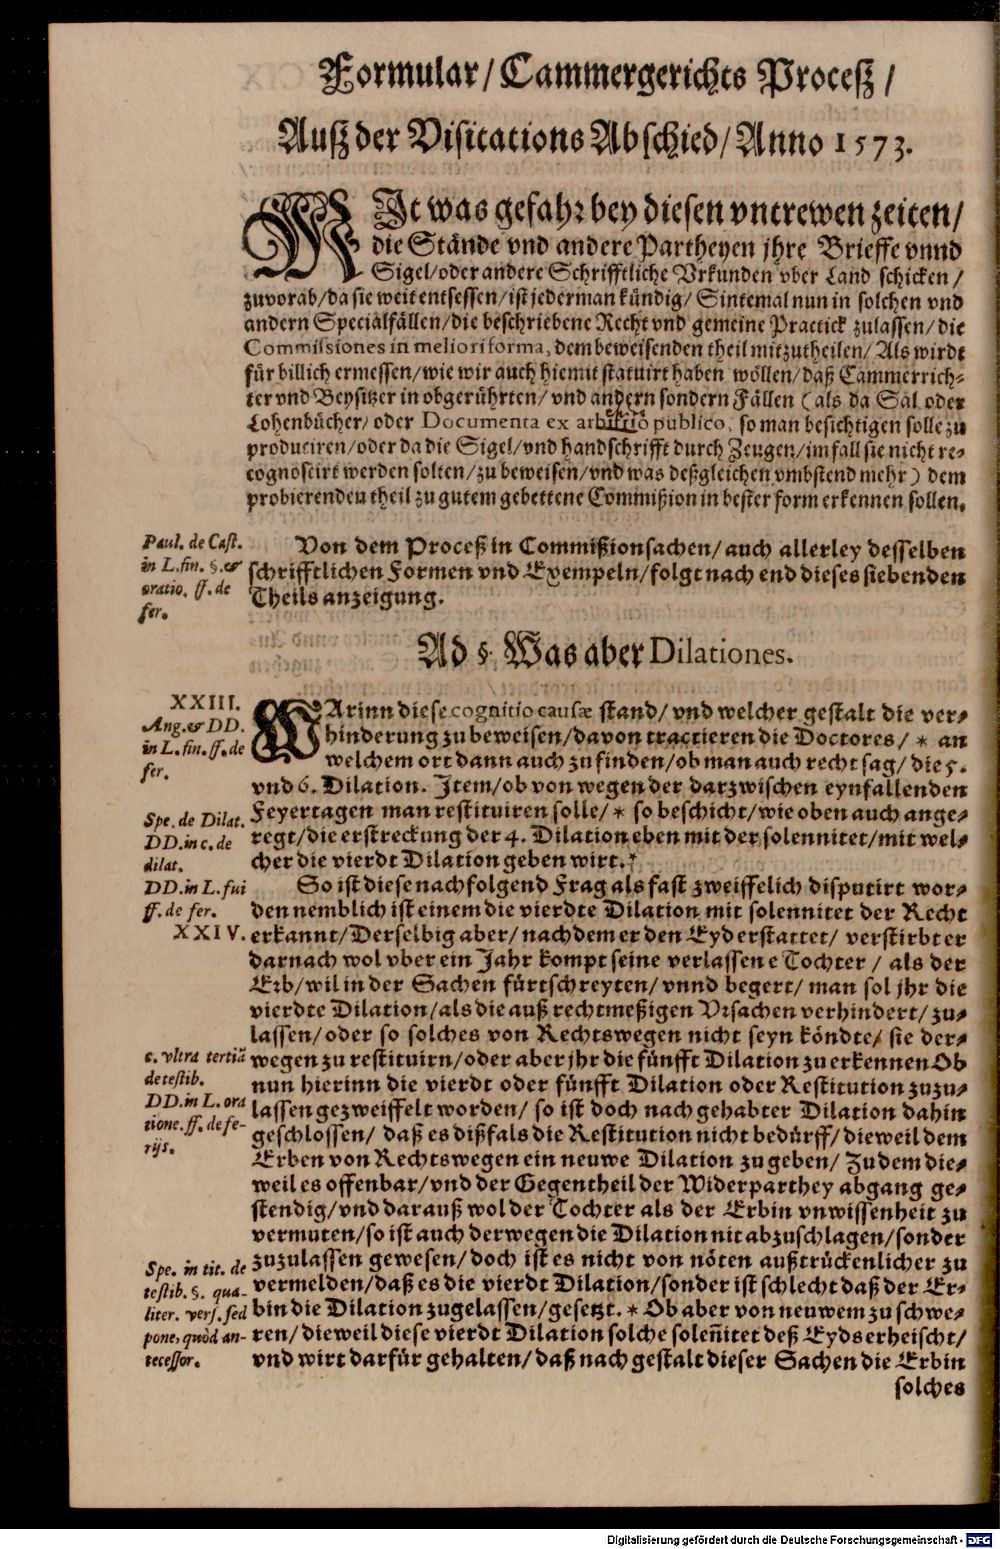 Formular/ Cammergerichts Proceß/
Auß der Visitations Abschied/ Anno 1573.
MIt was gefahr bey diesen vntrewen zeiten/
die Stände vnd andere Partheyen jhre Brieffe vnnd
Sigel/ oder andere Schrifftliche Vrkunden vber Land schicken/
zuvorab/ da sie weit entsessen/ ist jederman kündig/ Sintemal nun in solchen vnd
andern Specialfällen/ die beschriebene Recht vnd gemeine Practick zulassen/ die
Commissiones in meliori forma, dem beweisenden theil mitzutheilen/ Als wirdt
für billich ermessen/ wie wir auch hiemit statuirt haben wöllen/ daß Cammerrich-
ter vnd Beysitzer in obgerührten/ vnd andern sondern Fällen (als da Sal oder
Lohenbücher/ oder Documenta ex publico, so man besichtigen solle zu
produciren/ oder da die Sigel/ vnd handschrifft durch Zeugen/ im fall sie nicht re-
cognoscirt werden solten/ zu beweisen/ vnd was deßgleichen vmbstend mehr) dem
probierenden theil zu gutem gebettene Commißion in bester form erkennen sollen.
Paul. de Cast.
in L. fin. §. &
oratio. ff. de
fer.
Von dem Proceß in Commißionsachen/ auch allerley desselben
schrifftlichen Formen vnd Exempeln/ folgt nach end dieses siebenden
Theils anzeigung.
Ad §. Was aber Dilationes.
XXIII.
Ang. & DD.
in L. fin. ff. de
fer.
WArinn diese cognitio causæ stand/ vnd welcher gestalt die ver-
hinderung zu beweisen/ davon tractieren die Doctores/ * an
welchem ort dann auch zu finden/ ob man auch recht sag/ die 5.
vnd 6. Dilation. Item/ ob von wegen der darzwischen eynfallenden
Spe. de Dilat.
DD. in c. de
dilat.
Feyertagen man restituiren solle/ * so beschicht/ wie oben auch ange-
regt/ die erstreckung der 4. Dilation eben mit der solennitet/ mit wel-
cher die vierdt Dilation geben wirt. *
DD. in L. fui
ff. de fer.
XXIV.
So ist diese nachfolgend Frag als fast zweiffelich disputirt wor-
den nemblich ist einem die vierdte Dilation mit solennitet der Recht
erkannt/ Derselbig aber/ nachdem er den Eyd erstattet/ verstirbt er
darnach wol vber ein Jahr kompt seine verlassene Tochter/ als der
Erb/ wil in der Sachen fürtschreyten/ vnnd begert/ man sol jhr die
vierdte Dilation/ als die auß rechtmeßigen Vrsachen verhindert/ zu-
lassen/ oder so solches von Rechtswegen nicht seyn köndte/ sie der-
c. vltra tertiã
de testib.
DD. in L. ora
tione. ff. de fe-
rijs.
wegen zu restituirn/ oder aber jhr die fünfft Dilation zu erkennen Ob
nun hierinn die vierdt oder fünfft Dilation oder Restitution zuzu-
lassen gezweiffelt worden/ so ist doch nach gehabter Dilation dahin
geschlossen/ daß es dißfals die Restitution nicht bedürff/ dieweil dem
Erben von Rechtswegen ein neuwe Dilation zu geben/ Zu dem die-
weil es offenbar/ vnd der Gegentheil der Widerparthey abgang ge-
stendig/ vnd darauß wol der Tochter als der Erbin vnwissenheit zu
vermuten/ so ist auch derwegen die Dilation nit abzuschlagen/ sonder
Spe. in tit. de
testib. §. qua-
liter. vers. sed
pone, quòd an-
tecessor.
zuzulassen gewesen/ doch ist es nicht von nöten außtrückenlicher zu
vermelden/ daß es die vierdt Dilation/ sonder ist schlecht daß der Er-
bin die Dilation zugelassen/ gesetzt. * Ob aber von neuwem zu schwe-
ren/ dieweil diese vierdt Dilation solche soleñitet deß Eyds erheischt/
vnd wirt darfür gehalten/ daß nach gestalt dieser Sachen die Erbin
solches
Digitalisierung gefördert durch die Deutsche Forschungsgemeinschaft - DFG